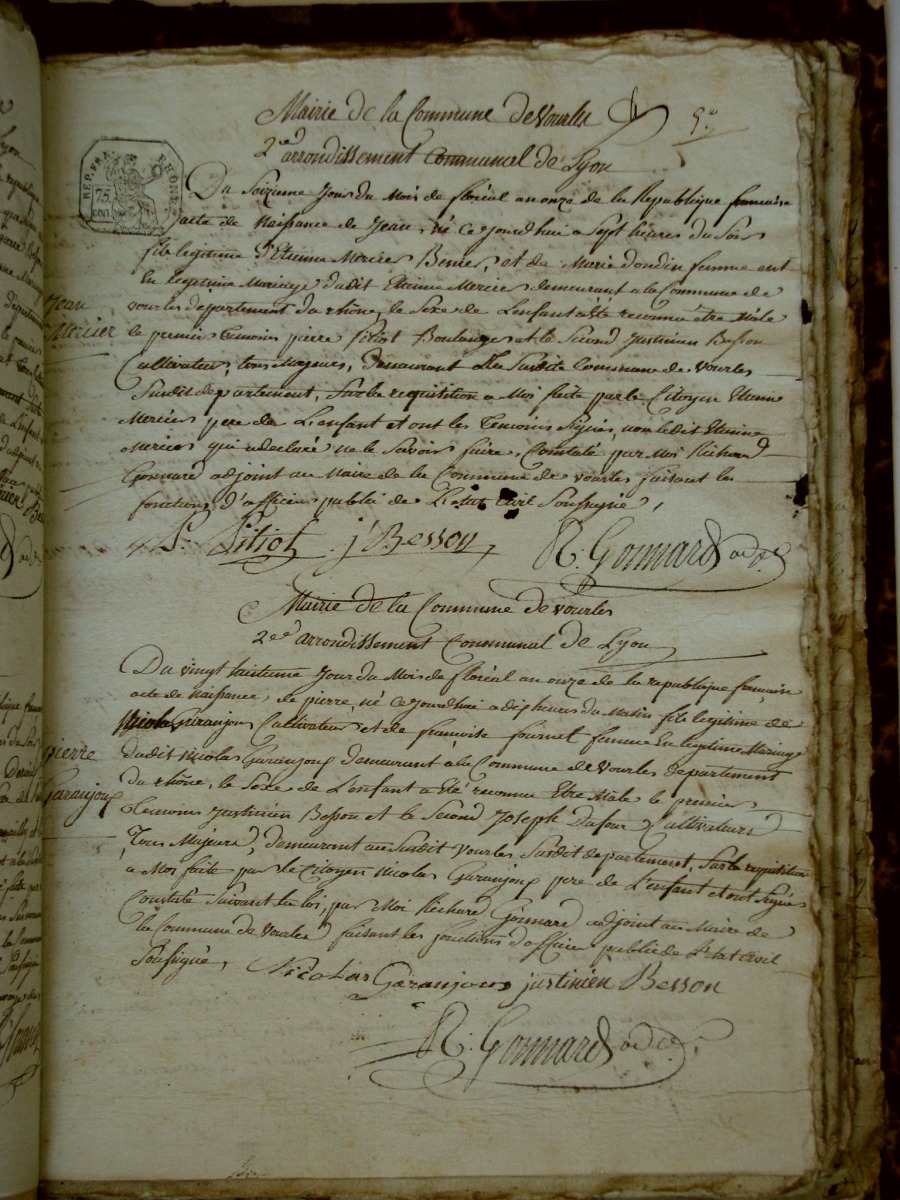 Mairie de la Commune de Vourles
5.e
2e arrondissement Communal de Lyon
REP. FRA.
75
CEN
RHONE
Du Seizieme Jour du Mois de floréal an onze de la Republique francaise
acte de Naissance de Jean, né ce jourdhui a Sept heures du Soir
fils legitime d'Etienne Mercier Benier, et de Marie dondin femme ent
En legitime Mariage dudit Etienne Mercier demeurant a la Commune de
vourles departement du rhône, le Sexe de L'enfant a été reconnu être Mâle
le premier temoins pierre pitiot Boulanger et le Second Justinien Besson
Cultivateur, tous Majeurs, Demeurant a la Susdite Commune de Vourles
Susdit departement, Sur la requisition a Moi faite par le Citoyen Etienne
Mercier pere de L'enfant et ont les Temoins Signés, non ledit Etienne
Mercier qui a declaré ne le Savoir faire, Constaté par Moi Richard
Gonnard adjoint au Maire de la Commune de Vourles faisant les
fonctions d'officier public de L'état civil Soussigné,
Jean
Mercier
P. Pitiot j Besson R. Gonnard adt.
Mairie de la Commune de vourles
2ee arrondissement Communal de Lyon
Du vingt huitieme Jour du Mois de floréal an onze de la republique francaise
acte de Naissance, de pierre, né ce jourdhui a dix heures du Matin fils legitime de
Nicolas Garanjoux Cultivateur et de francoise fournet femme En legitime Mariage
dudit Nicolas Garanjoux demeurant à la Commune de Vourles departement
du rhône, le Sexe de L'enfant a été reconnu Etre Mâle le premier
temoins Justinien Besson et le Second Joseph Dufour Cultivateurs
Tous Majeurs, demeurant au Susdit Vourles Susdit departement, Sur la requisition
a Moi faite par le Citoyen Nicolas Garanjoux pere de L'enfant et ont Signés
Constaté Suivant la loi, par Moi Richard Gonnard adjoint au Maire de
la Commune de Vourles faisant les fonctions d'officier public de L'état civil
Soussigné,
pierre
Garanjoux
Nicolas Garanjoux justinien Besson
R. Gonnard adt.